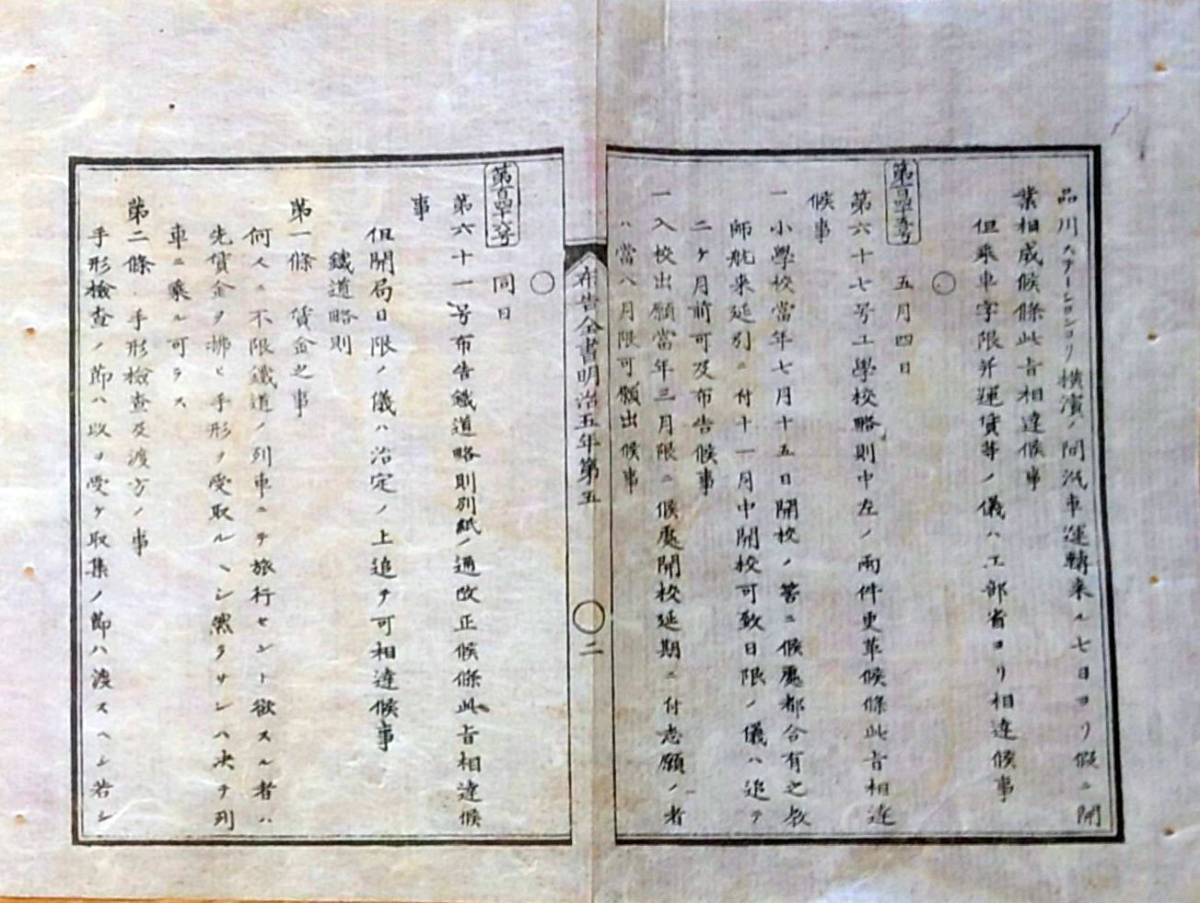 品川ステーシヨンヨリ横濱ノ間汽車運轉来ル七日ヨリ假ニ開
業相成候條此旨相達候事
但乗車字限并運賃等ノ儀ハ工部省ヨリ相達候事
○
第百四十五号
五月四日
第六十七号工學校略則中左ノ兩件更革候條此旨相達
候事
一小學校當年七月十五日開校ノ筈ニ候處都合有之教
師航来延引ニ付十一月中開校可致日限ノ儀ハ追テ
二ケ月前可及布告候事
一入校出願當年三月限ニ候處開校延期ニ付志願ノ者
ハ當八月限可願出候事
布告全書明治五年第五
○二
○
第百四十六号
同日
第六十一号布告鐵道略則別紙ノ通改正候條此旨相達候
事
但開局日限ノ儀ハ治定ノ上追テ可相達候事
鐵道略則
第一條 賃金之事
何人ニ不限鐵道ノ列車ニテ旅行セント欲スル者ハ
先賃金ヲ拂ヒ手形ヲ受取ルヘシ然ラサレハ决テ列
車ニ乗ル可ラス
第二條 手形檢査及渡方ノ事
手形檢査ノ節ハ改ヲ受ケ取集ノ節ハ渡スヘシ若シ